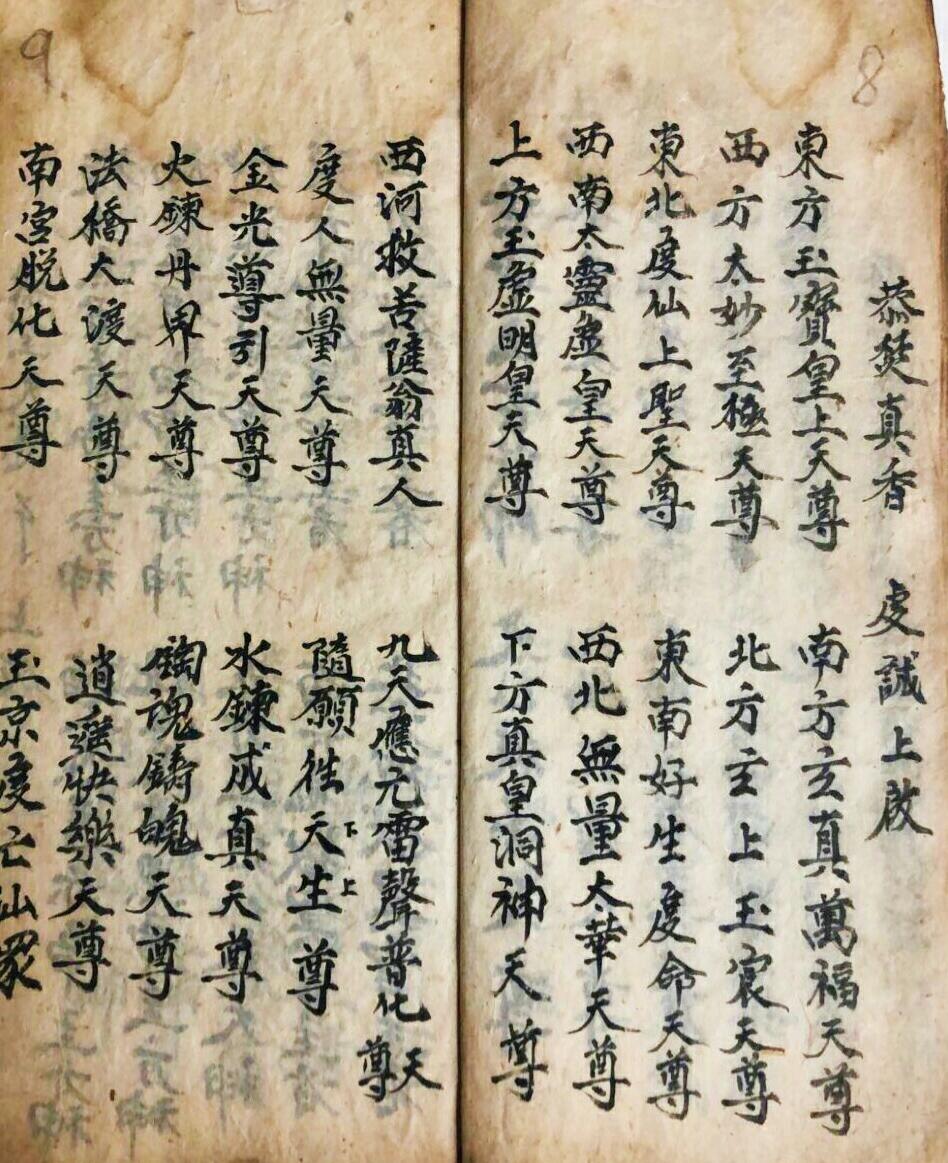 8
恭焚真香 虔誠上啟
東方玉寶皇上天尊 南方玄真萬福天尊
西方太妙至極天尊 北方玄上玉宸天尊
東北度仙上聖天尊 東南好生度命天尊
西南太靈虛皇天尊 西北無量太華天尊
上方玉虛明皇天尊 下方真皇洞神天尊
9
西河救苦薩翁真人 九天應元雷聲普化天尊
度人無量天尊 隨願徃天下生上尊
金光導引天尊 水鍊成真天尊
火鍊丹界天尊 陶魂鑄魄天尊
法橋大渡天尊 逍遙快樂天尊
南宮脱化天尊 玉京度亡仙眾